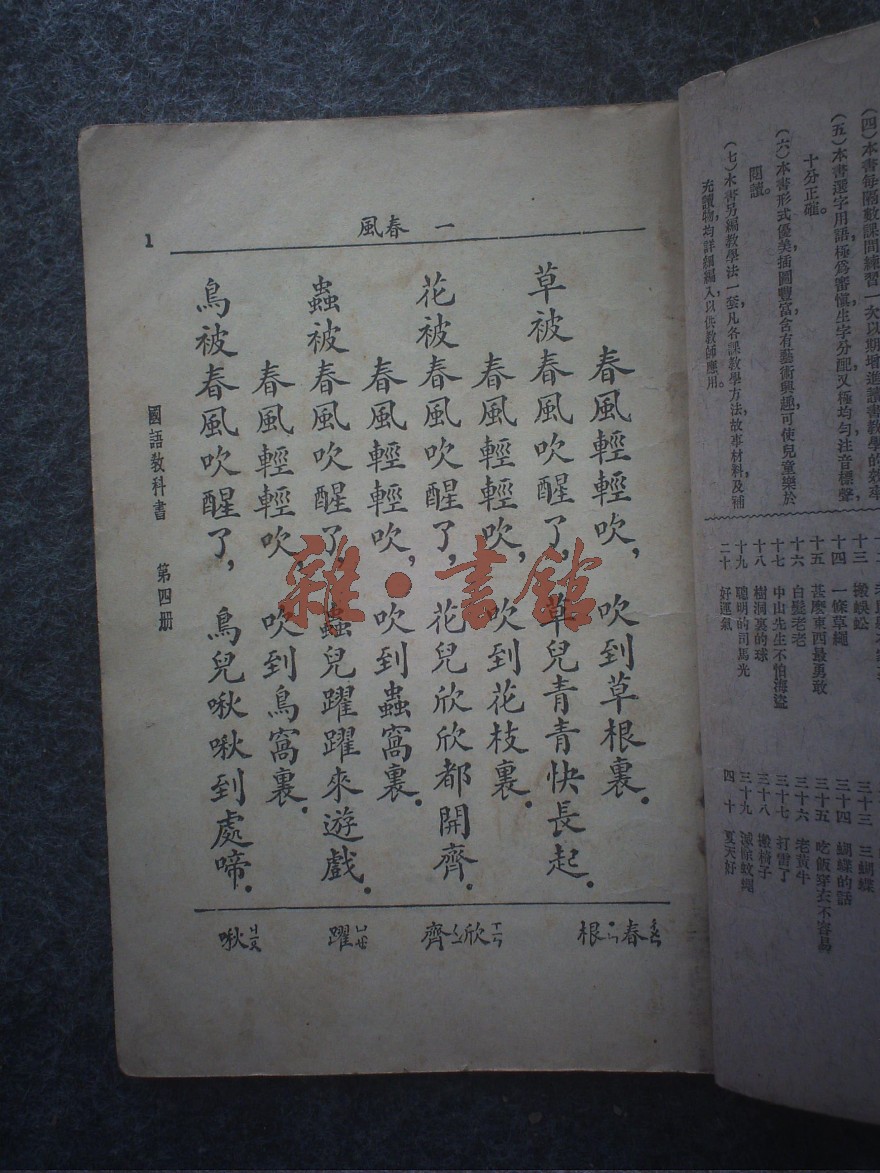 (四)本書每隔數課間練習一次以期增進讀書教學的效率
(五)本書選字用語極爲審愼生字分配又極均勻注音標聲,
十分正確。
(六)本書形式優美插圖豐富含有藝術興趣可使兒童樂於
閱讀。
(七)本書另編敎學法一套凡各課敎學方法,故事材料及補
充讀物,均詳細編入以供敎師應用。
十三 搬蜈蚣
十四 一條草繩
十五 甚麼東西最勇敢
十六 白髮老老
十七 中山先生不怕海盜
十八 樹洞裏的球
十九 聰明的司馬光
二十 好運氣
三十三 三蝴蝶
三十四 蝴蝶的話
三十五 吃飯穿衣不容易
三十六 老黃牛
三十七 打雷了
三十八 搬椅子
三十九 滅除蚊蠅
四十 夏天好
一 春風
春風輕輕吹,吹到草根裏.
草被春風吹醒了,草兒靑靑快長起.
春風輕輕吹,吹到花枝裏.
花被春風吹醒了,花兒欣欣都開齊.
春風輕輕吹,吹到蟲窩裏.
蟲被春風吹醒了,蟲兒躍躍來遊戲.
春風輕輕吹,吹到鳥窩裏.
鳥被春風吹醒了,鳥兒啾啾到處啼.
春 根 欣 齊 躍 啾
國語敎科書 第四册
1
雜·書館